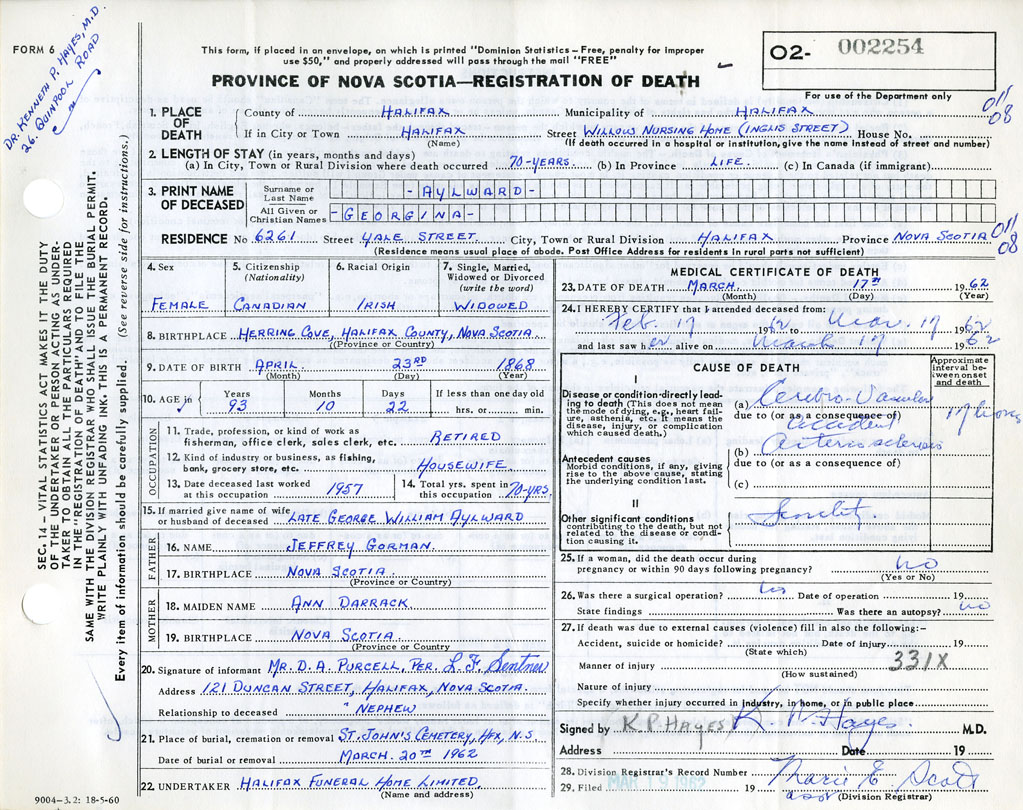 FORM 6
DR. KENNETH P. HAYES, M.D.
26. QUINPOOL ROAD
This form, if placed in an envelope, on which is printed "Dominion Statistics – Free, penalty for improper
use $50," and properly addressed will pass through the mail "FREE"
PROVINCE OF NOVA SCOTIA—REGISTRATION OF DEATH
02- 002254
For use of the Department only
011
08
1. PLACE OF DEATH
County of HALIFAX Municipality of HALIFAX
If in City or Town HALIFAX Street WILLOWS NURSING HOME (INGLIS STREET) House No.
(Name) (If death occurred in a hospital or institution, give the name instead of street and number)
2. LENGTH OF STAY (in years, months and days)
(a) In City, Town or Rural Division where death occurred 70-YEARS. (b) In Province LIFE. (c) In Canada (if immigrant)
3. PRINT NAME OF DECEASED
Surname or Last Name -AYLWARD-
All Given or Christian Names -GEORGINA-
RESIDENCE No 6261 Street YALE STREET City, Town or Rural Division HALIFAX Province NOVA SCOTIA
011
08
(Residence means usual place of abode. Post Office Address for residents in rural parts not sufficient)
4. Sex FEMALE
5. Citizenship (Nationality) CANADIAN
6. Racial Origin IRISH
7. Single, Married, Widowed or Divorced (write the word) WIDOWED
8. BIRTHPLACE HERRING COVE, HALIFAX COUNTY, NOVA SCOTIA
(Province or Country)
9. DATE OF BIRTH APRIL 23RD 1868
(Month) (Day) (Year)
10. AGE in Years 93 Months 10 Days 22 If less than one day old hrs. or min.
OCCUPATION
11. Trade, profession, or kind of work as
fisherman, office clerk, sales clerk, etc. RETIRED
12. Kind of industry or business, as fishing,
bank, grocery store, etc. HOUSEWIFE
13. Date deceased last worked at this occupation 1957
14. Total yrs. spent in this occupation 70-YRS.
15. If married give name of wife
or husband of deceased LATE GEORGE WILLIAM AYLWARD
FATHER
16. NAME JEFFREY GORMAN.
17. BIRTHPLACE NOVA SCOTIA
(Province or Country)
MOTHER
18. MAIDEN NAME ANN DARRACK
19. BIRTHPLACE NOVA SCOTIA.
(Province or Country
20. Signature of informant MR. D. A. PURCELL, PER. L. F. Sentner
Address 121 DUNCAN STREET, HALIFAX, NOVA SCOTIA.
Relationship to deceased NEPHEW
21. Place of burial, cremation or removal ST. JOHN'S CEMETERY, HFX, N.S.
Date of burial or removal MARCH. 20TH 1962
22. UNDERTAKER HALIFAX FUNERAL HOME LIMITED.
(Name and address)
9004-3.2: 18-5-60
MEDICAL CERTIFICATE OF DEATH
23. DATE OF DEATH MARCH 17TH 1962
(Month) (Day) (Year)
24. I HEREBY CERTIFY that I attended deceased from:
Feb. 17 1962 to Mar. 17 1962
and last saw her alive on March 17 1962
CAUSE OF DEATH
Approximate interval between onset and death
I
Disease or condition directly leading to death (This does not mean the mode of dying, e.g., heart failure, asthenia, etc. It means the disease, injury, or complication which caused death.)
(a) Cerebro-Vascular
due to (or as a consequence of)
accident
17 hours
Antecedent causes
Morbid conditions, if any, giving rise to the above cause, stating the underlying condition last.
(b) arteriosclerosis
due to (or as a consequence of)
(c)
II
Other significant conditions
contributing to the death, but not related to the disease or condition causing it.
Senility.
25. If a woman, did the death occur during
pregnancy or within 90 days following pregnancy? no
(Yes or No)
26. Was there a surgical operation? no Date of operation 19
State findings Was there an autopsy? no
27. If death was due to external causes (violence) fill in also the following:-
Accident, suicide or homicide? Date of injury 19
(State which)
331X
Manner of injury
(How sustained)
Nature of injury
Specify whether injury occurred in industry, in home, or in public place
Signed by K P HAYES K. P. Hayes. M.D.
Address Date 19
28. Division Registrar's Record Number
29. Filed MAR 19 1962 19 Marie E Scott
asst (Division Registrar)
SEC. 14 — VITAL STATISTICS ACT MAKES IT THE DUTY
OF THE UNDERTAKER OR PERSON ACTING AS UNDERTAKER
TO OBTAIN ALL THE PARTICULARS REQUIRED
IN THE "REGISTRATION OF DEATH" AND TO FILE THE
SAME WITH THE DIVISION REGISTRAR WHO SHALL ISSUE THE BURIAL PERMIT.
WRITE PLAINLY WITH UNFADING INK. THIS IS A PERMANENT RECORD.
Every item of information should be carefully supplied. (See reverse side for instructions.)